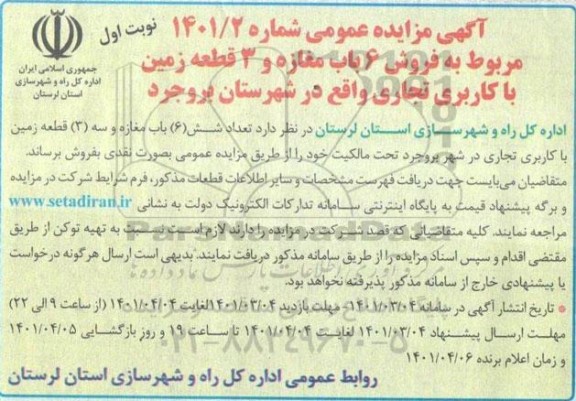 آگهی مزایده عمومی شماره ۱۴۰۱/۲
نوبت اول
مربوط به فروش ۶ باب مغازه و ۳ قطعه زمین
با کاربری تجاری واقع در شهرستان بروجرد
جمهوری اسلامی ایران
اداره کل راه و شهرسازی
استان لرستان
اداره کل راه و شهرسازی استان لرستان در نظر دارد تعداد شش(۶) باب مغازه و سه (۳) قطعه زمین
با کاربری تجاری در شهر بروجرد تحت مالکیت خود را از طریق مزایده عمومی بصورت نقدی بفروش برساند.
متقاضیان می‌بایست جهت دریافت فهرست مشخصات و سایر اطلاعات قطعات مذکور، فرم شرایط شرکت در مزایده
و برگه پیشنهاد قیمت به پایگاه اینترنتی سامانه تدارکات الکترونیک دولت به نشانی www.setadiran.ir
مراجعه نمایند. کلیه متقاضیانی که قصد شرکت در مزایده را دارند لازم است نسبت به تهیه توکن از طریق
مقتضی اقدام و سپس اسناد مزایده را از طریق سامانه مذکور دریافت نمایند. بدیهی است ارسال هرگونه درخواست
یا پیشنهادی خارج از سامانه مذکور پذیرفته نخواهد بود.
* تاریخ انتشار آگهی در سامانه ۱۴۰۱/۰۳/۰۴ مهلت بازدید ۱۴۰۱/۰۳/۰۴ لغایت ۱۴۰۱/۰۴/۰۴ (از ساعت ۹ الی ۲۲)
مهلت ارسال پیشنهاد ۱۴۰۱/۰۳/۰۴ لغایت ۱۴۰۱/۰۴/۰۴ تا ساعت ۱۹ و روز بازگشایی ۱۴۰۱/۰۴/۰۵
و زمان اعلام برنده ۱۴۰۱/۰۴/۰۶
روابط عمومی اداره کل راه و شهرسازی استان لرستان
ParsNamadData
۰۲۱-۸۸۳۴۹۶۷۰-۵